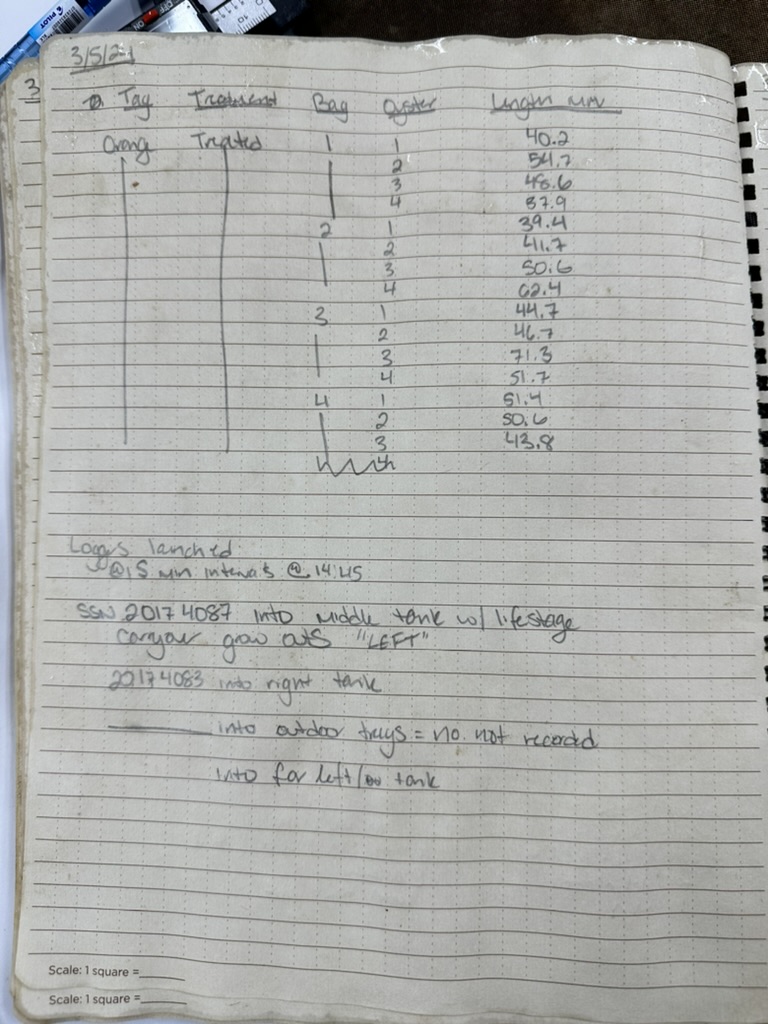 PILOT
ON
3/5/24
3
Tag Treatment Bag Oyster Length mm
Orange Treated 1 1 40.2
2 54.7
3 48.6
4 37.9
2 1 39.4
2 41.7
3 50.6
4 62.4
3 1 44.7
2 46.7
3 71.3
4 51.7
4 1 51.4
2 50.6
3 43.8
Loggers lanched
@15 min intervals @ 14:45
SSN 20174087 into middle tank w/ lifestage
carryover grow outs "LEFT"
20174083 into right tank
into outdoor trays = no. not recorded
into far left tank
Scale: 1 square =
Scale: 1 square =